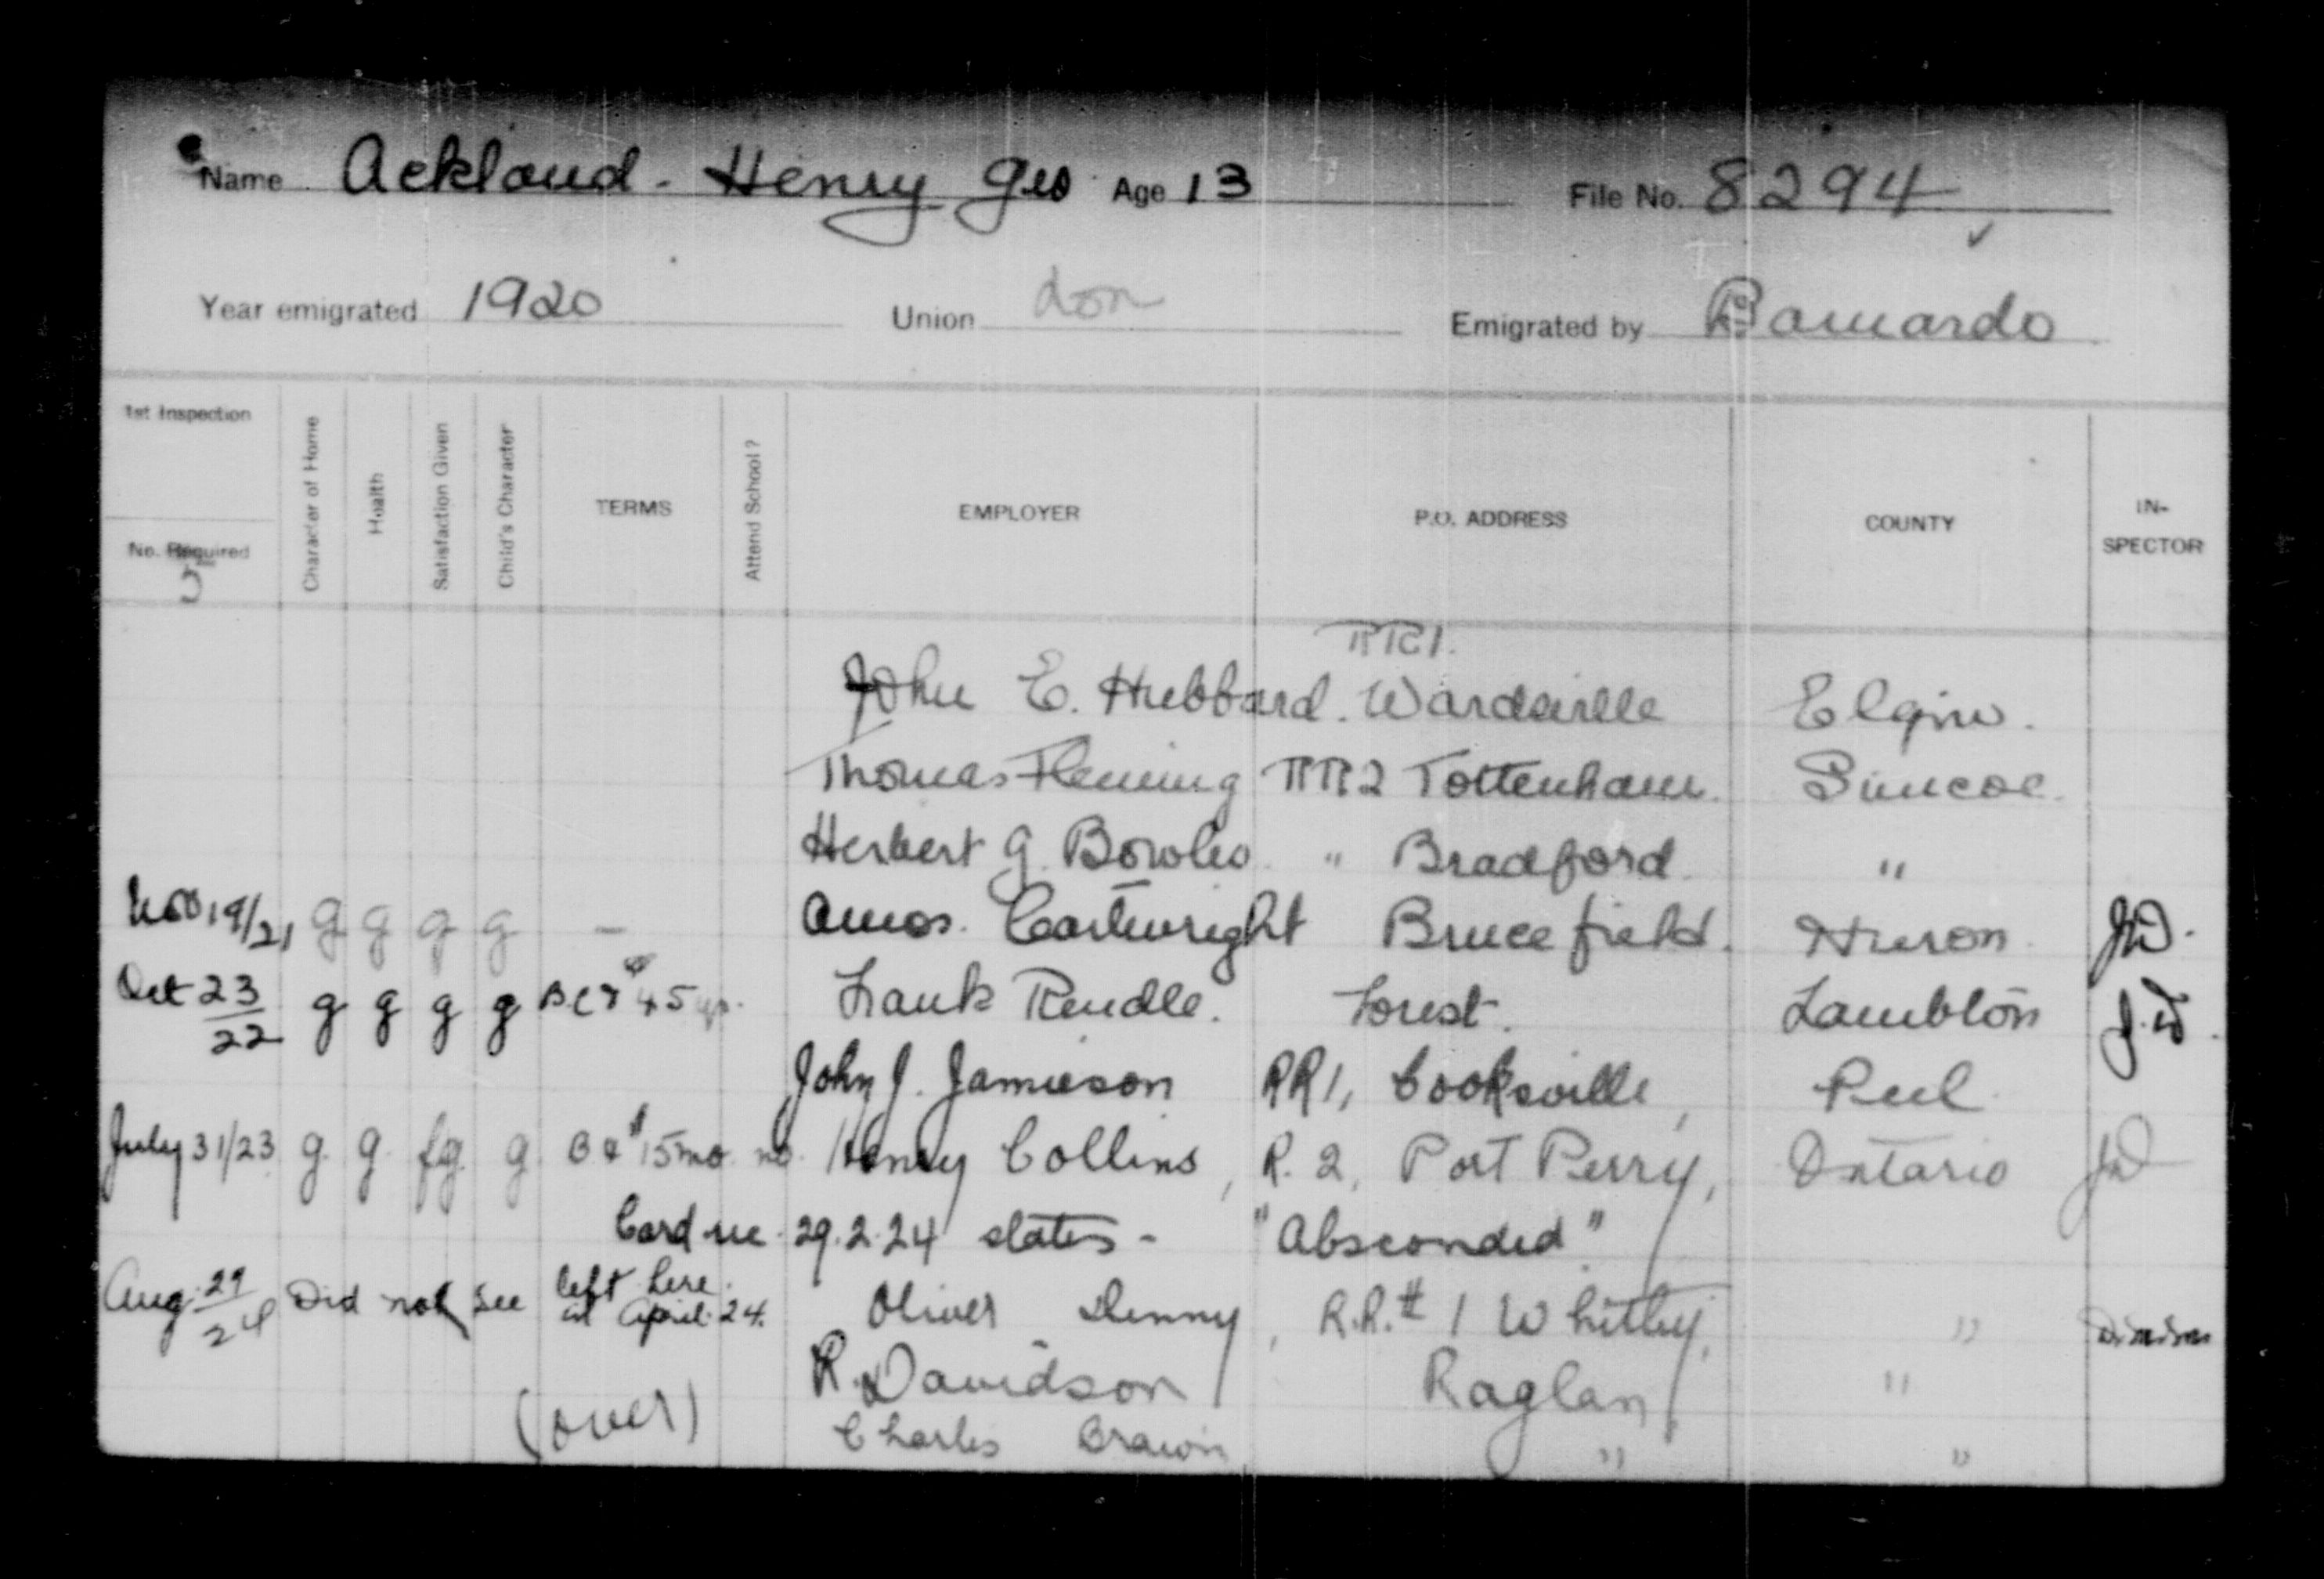 Name Ackland - Henry Geo Age 13 File No. 8294
Year emigrated 1920 Union Lon Emigrated by Barnardo
1st Inspection
No. Required
5
Character of Home
Health
Satisfaction Given
Child's Character
TERMS
Attend School?
EMPLOYER
P.O. ADDRESS
COUNTY
IN-
SPECTOR
RR1.
John E. Hubbard. Wardsville Elgin.
Thomas Fleming RR2 Tottenham. Simcoe.
Herbert G. Bowles. " Bradford. "
Nov 19/21 g g g g - Amos. Cartwright Brucefield. Huron. JW.
Oct 23/22 g g g g B C & $45 yr. Frank Rendle. Forest. Lambton J.W.
John J. Jamieson RR1, Cooksville, Peel.
July 31/23 g. g. fg. g. B & $15 mo. no. Henry Collins, R. 2, Port Perry, Ontario JW
Card rec. 29.2.24 states - "Absconded"
Aug. 29/24 Did not see left here in April. 24. Oliver Denny, R.R. # 1 Whitby, "
R. Davidson Raglan, "
(over) Charles Brawn " "